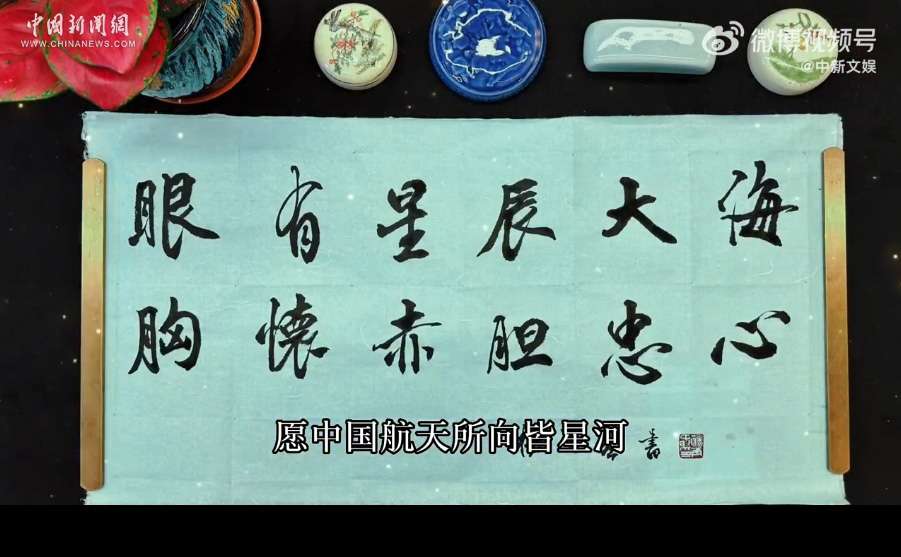 中國新聞網
WWW.CHINANEWS.COM
微博视频号
@中新文娱
眼有星辰大海
胸懷赤胆忠心
愿中国航天所向皆星河
書